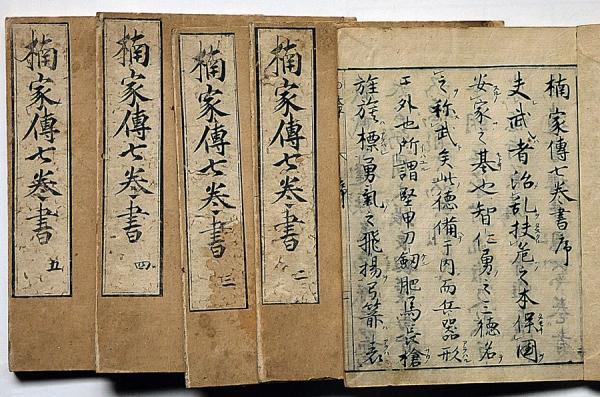 楠家傳七巻書序
夫武者治乱扶危之本保國
安家之基也智仁勇之三德名
之称武矣此德備于内而兵器形
于外也所謂堅甲刀釼肥馬長槍
旌旗標勇氣之飛揚弓箭表
楠家傳七巻書 二
楠家傳七巻書 三
楠家傳七巻書 四
楠家傳七巻書 五